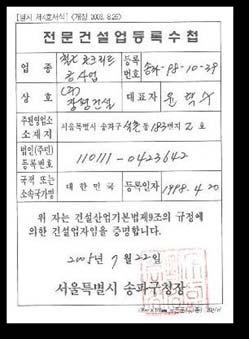 [별시 제4호서식] <개정 2003. 8.26>
전문건설업등록수첩
업종 철근.콘크리트 공사업 등록번호 송파-98-10-29
상호 (주) 대표자
주된영업소 소재지 서울특별시 송파구 183번지 2호
법인(주민) 등록번호 110111-0423642
국적 또는 소속국가명 대한민국 등록일자 1998.4.20
위 자는 건설산업기본법제9조의 규정에
의한 건설업자임을 증명합니다.
2005년 7월 22일
서울특별시 송파구청장